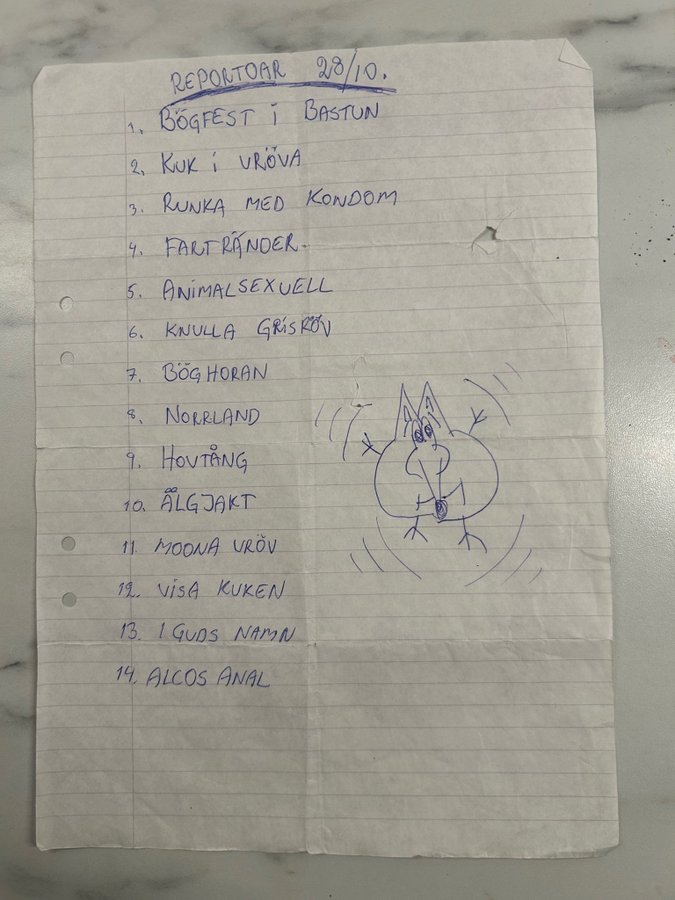 REPORTOAR 28/10.
1. BÖGFEST i BASTUN
2. KUK i VRÖVA
3. RUNKA MED KONDOM
4. FARTRÄNDER.
5. ANIMALSEXUELL
6. KNULLA GRISRÖV
7. BÖGHORAN
8. NORRLAND
9. HOVTÅNG
10. ÄLGJAKT
11. MOONA VRÖV
12. VISA KUKEN
13. I GUDS NAMN
14. ALCOS ANAL